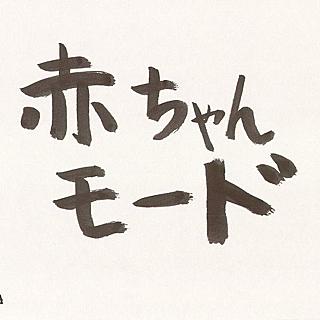 赤ちゃん
モード